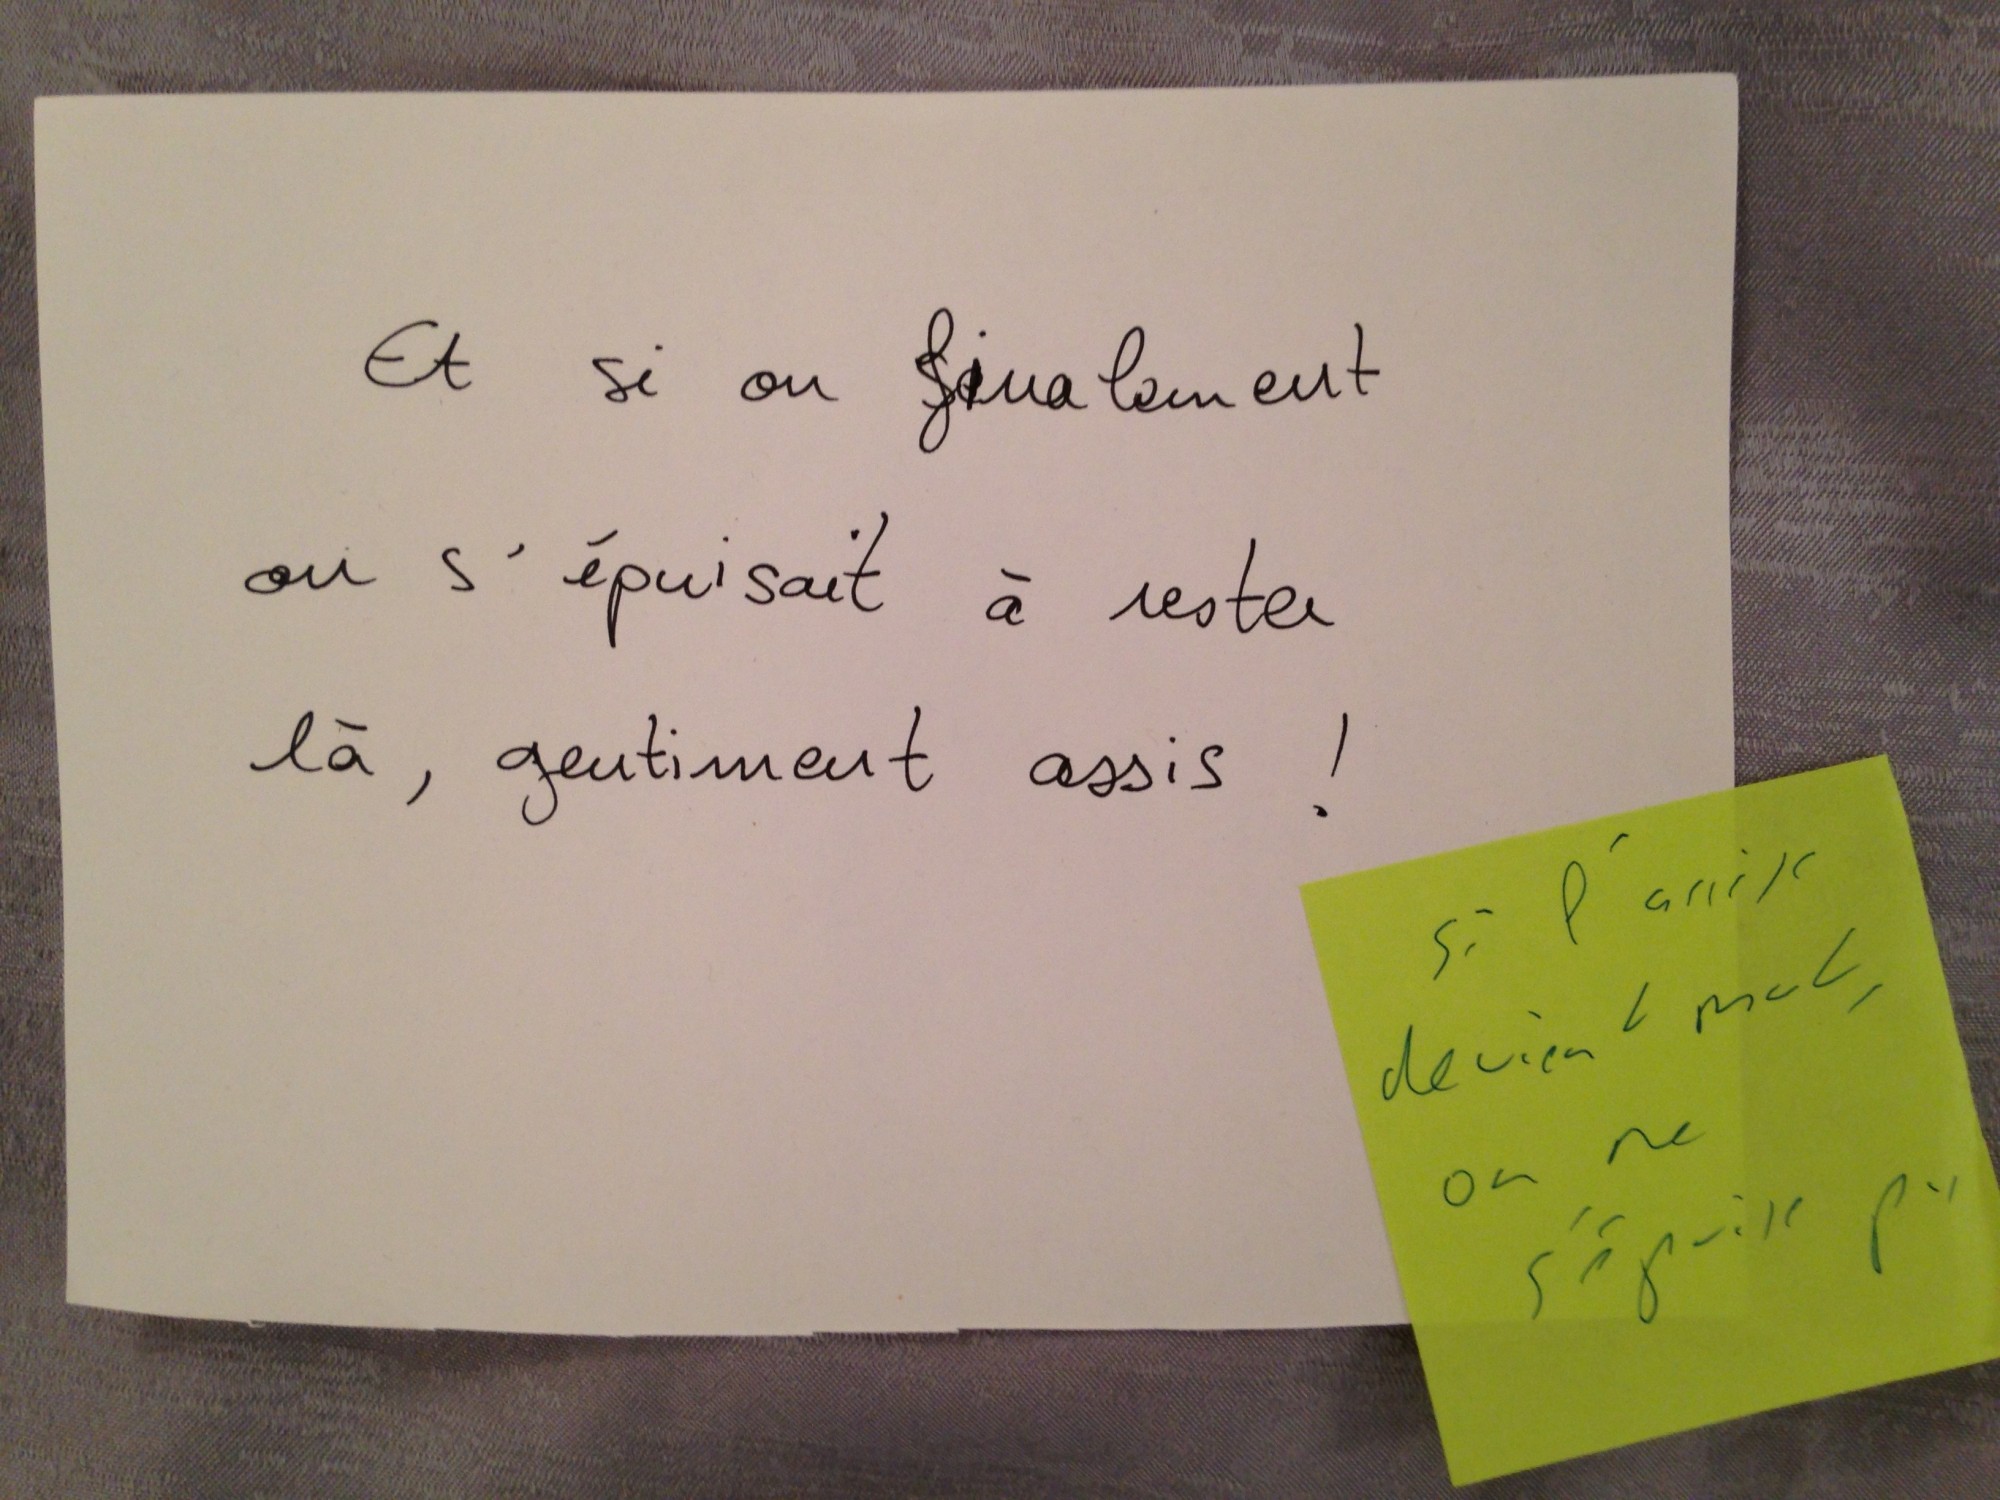 Et si on finalement
on s'épuisait à rester
là, gentiment assis !
si l'assise
devient
on ne
s'épuise